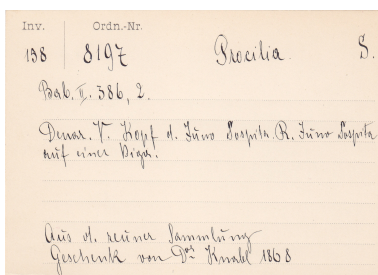 Inv. Ordn.-Nr.
198 8197 Procilia S.
Bab. II. 386, 2.
Denar. V. Kopf d. Juno Sospita R. Juno Sospita
auf einer Biga.
Aus d. Sammlung
Geschenk von Drs Knabl 1868